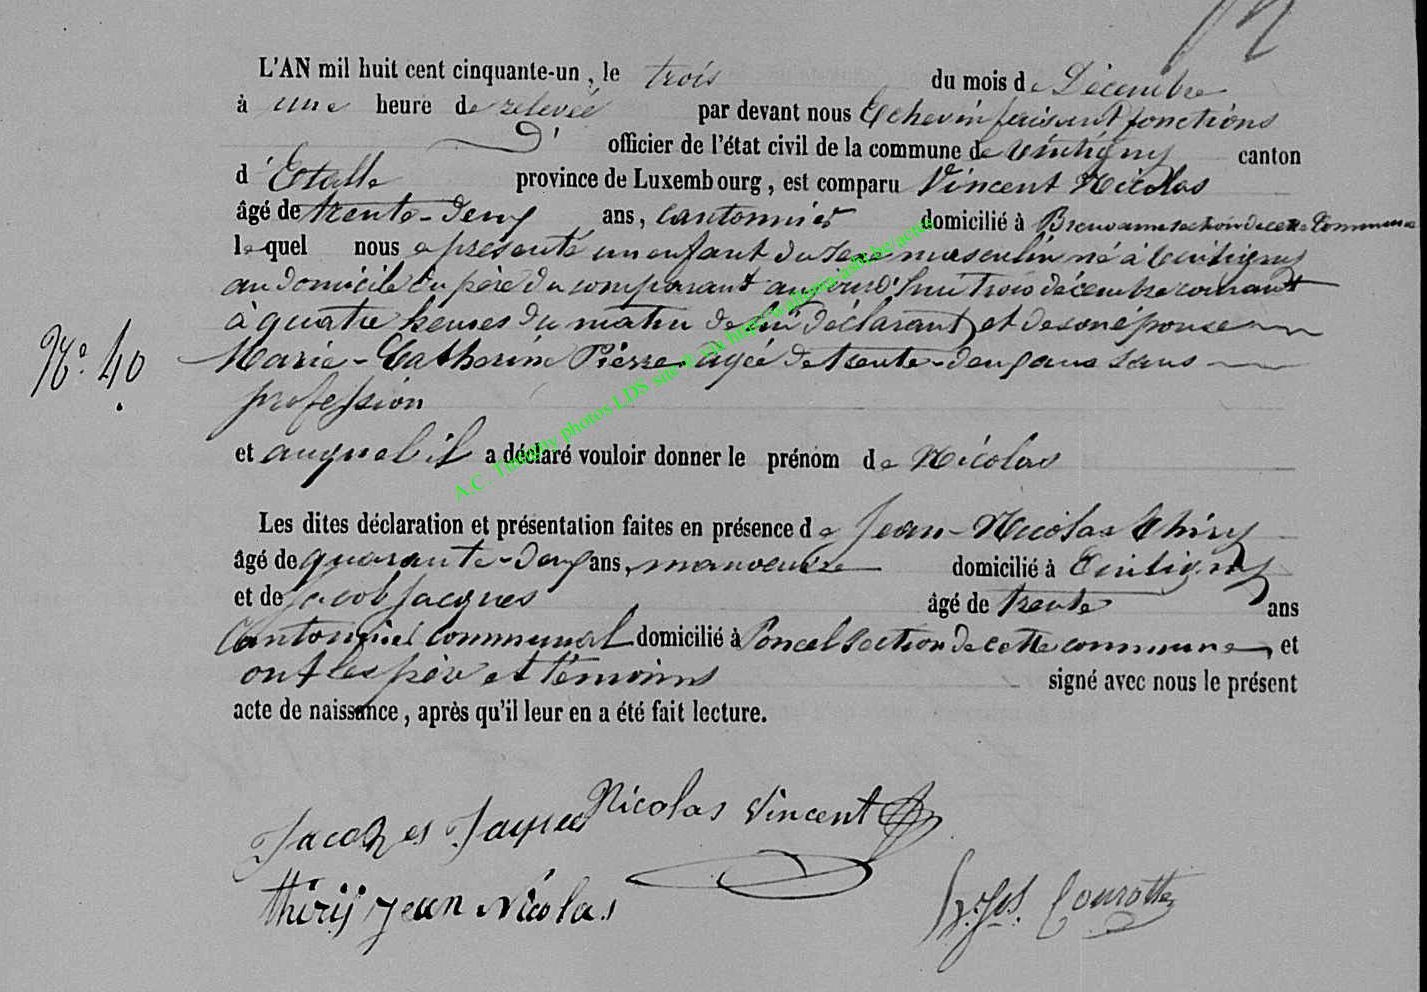 L'AN mil huit cent cinquante-un, le trois du mois de Décembre
à une heure de relevée par devant nous Echevin faisant fonctions
D' officier de l'état civil de la commune de Tintigny canton
d'Etalle province de Luxembourg, est comparu Vincent Nicolas
âgé de trente-deux ans, cantonnier domicilié à Breuvanne section de cette Commune
lequel nous a présenté un enfant du sexe masculin né à Tintigny
au domicile du père du comparant aujourd'hui trois décembre courant
à quatre heures du matin de lui déclarant et de son épouse
N° 40
Marie-Catherine Pierre agée de trente-deux ans sans
profession
et auquel il a déclaré vouloir donner le prénom de Nicolas
A.C. Tintigny photos LDS site © via http://wallonia-asbl.be/actes
Les dites déclaration et présentation faites en présence de Jean-Nicolas Thiry
âgé de quarante-deux ans, manoeuvre domicilié à Tintigny
et de Jacob Jacques âgé de trente ans
Cantonnier communal domicilié à Poncel section de cette commune, et
ont les père et témoins signé avec nous le présent
acte de naissance, après qu'il leur en a été fait lecture.
Nicolas Vincent
Jacques
thirÿ jean nicolas